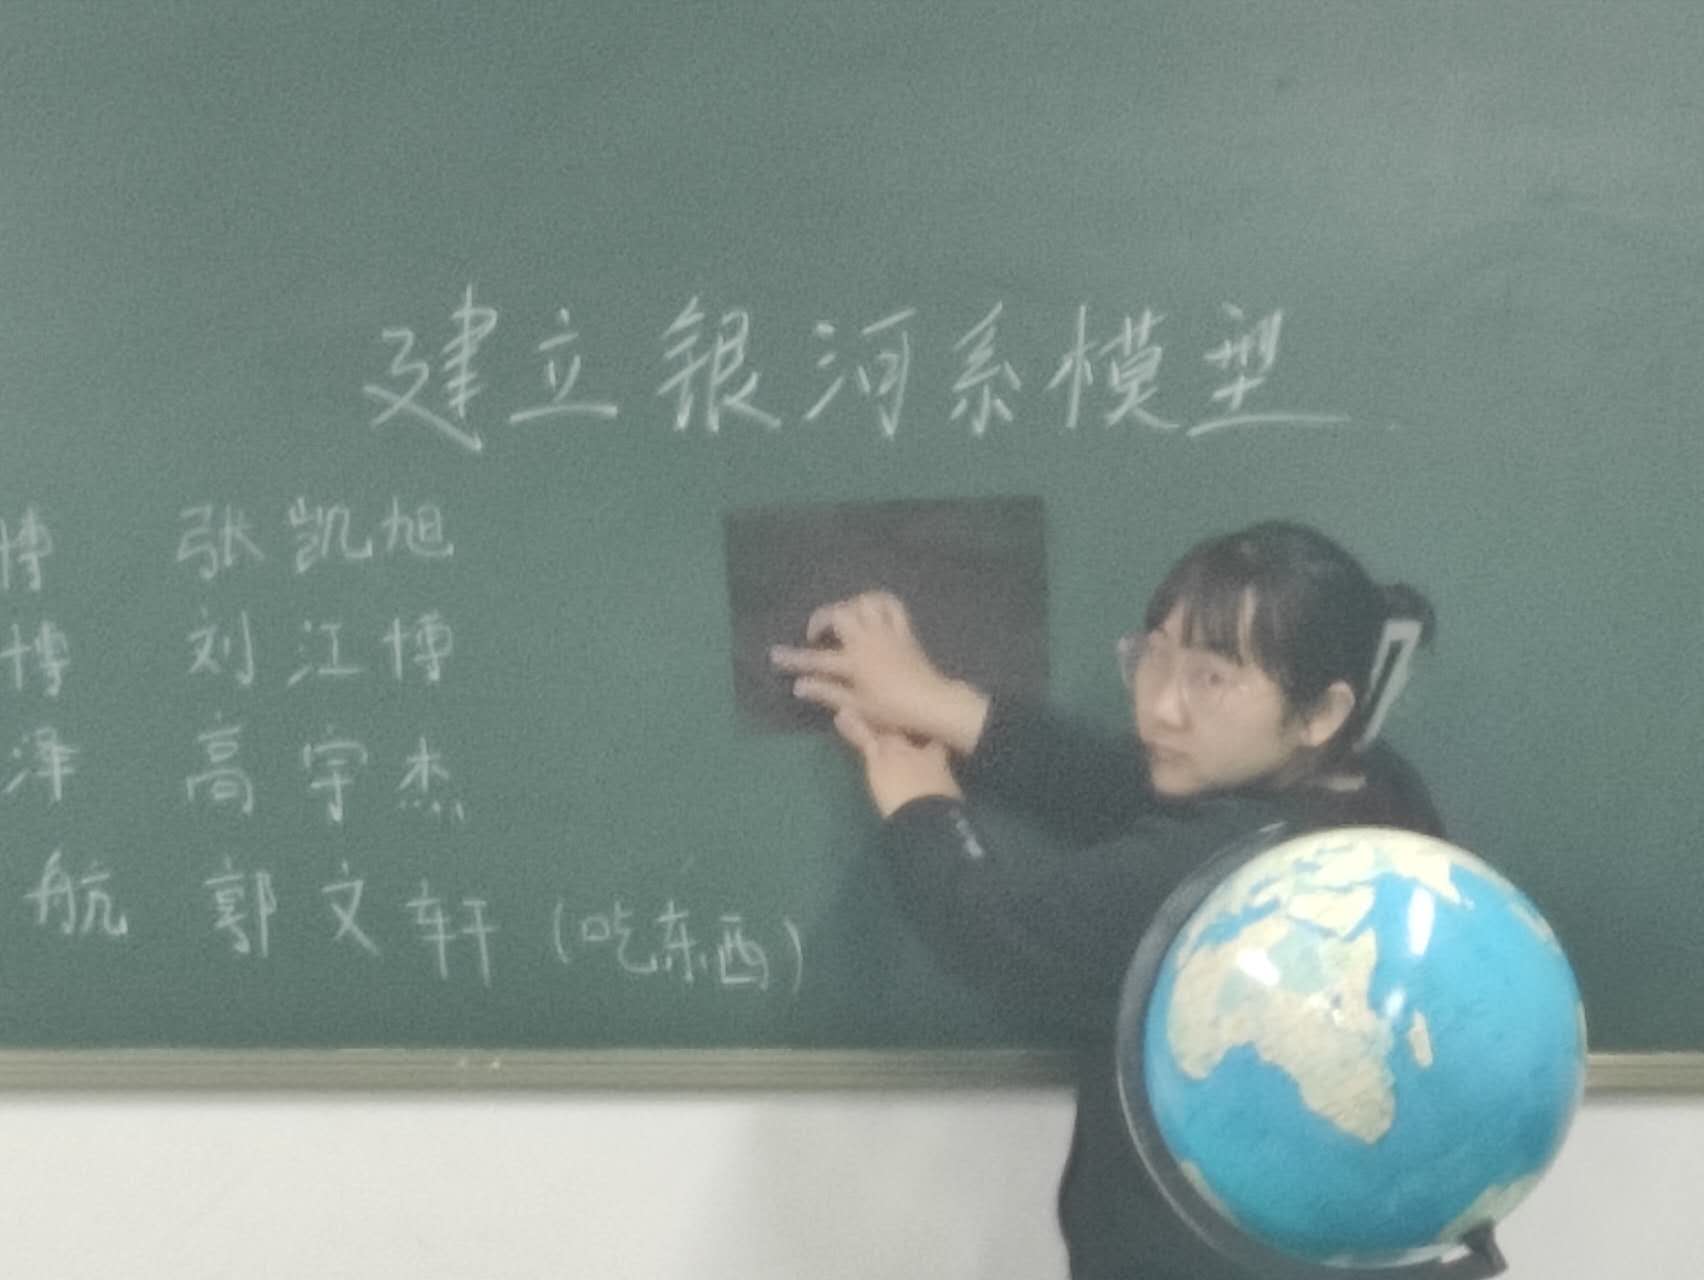 建立银河系模型
博 张凯旭
博 刘江博
泽 高宇杰
航 郭文轩（吃东西）